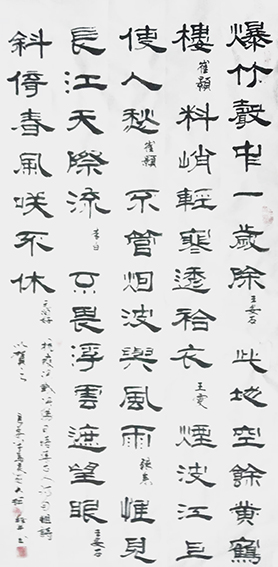 爆竹聲中一歲除 王安石 此地空餘黃鶴
樓 崔顥 料峭輕寒透袷衣 王 煙波江上
使人愁 崔顥 不管烟波與風雨 張耒 惟見
長江天際流 李白 只畏浮雲遮望眼 王安石
斜倚春風咲不休
以賀之